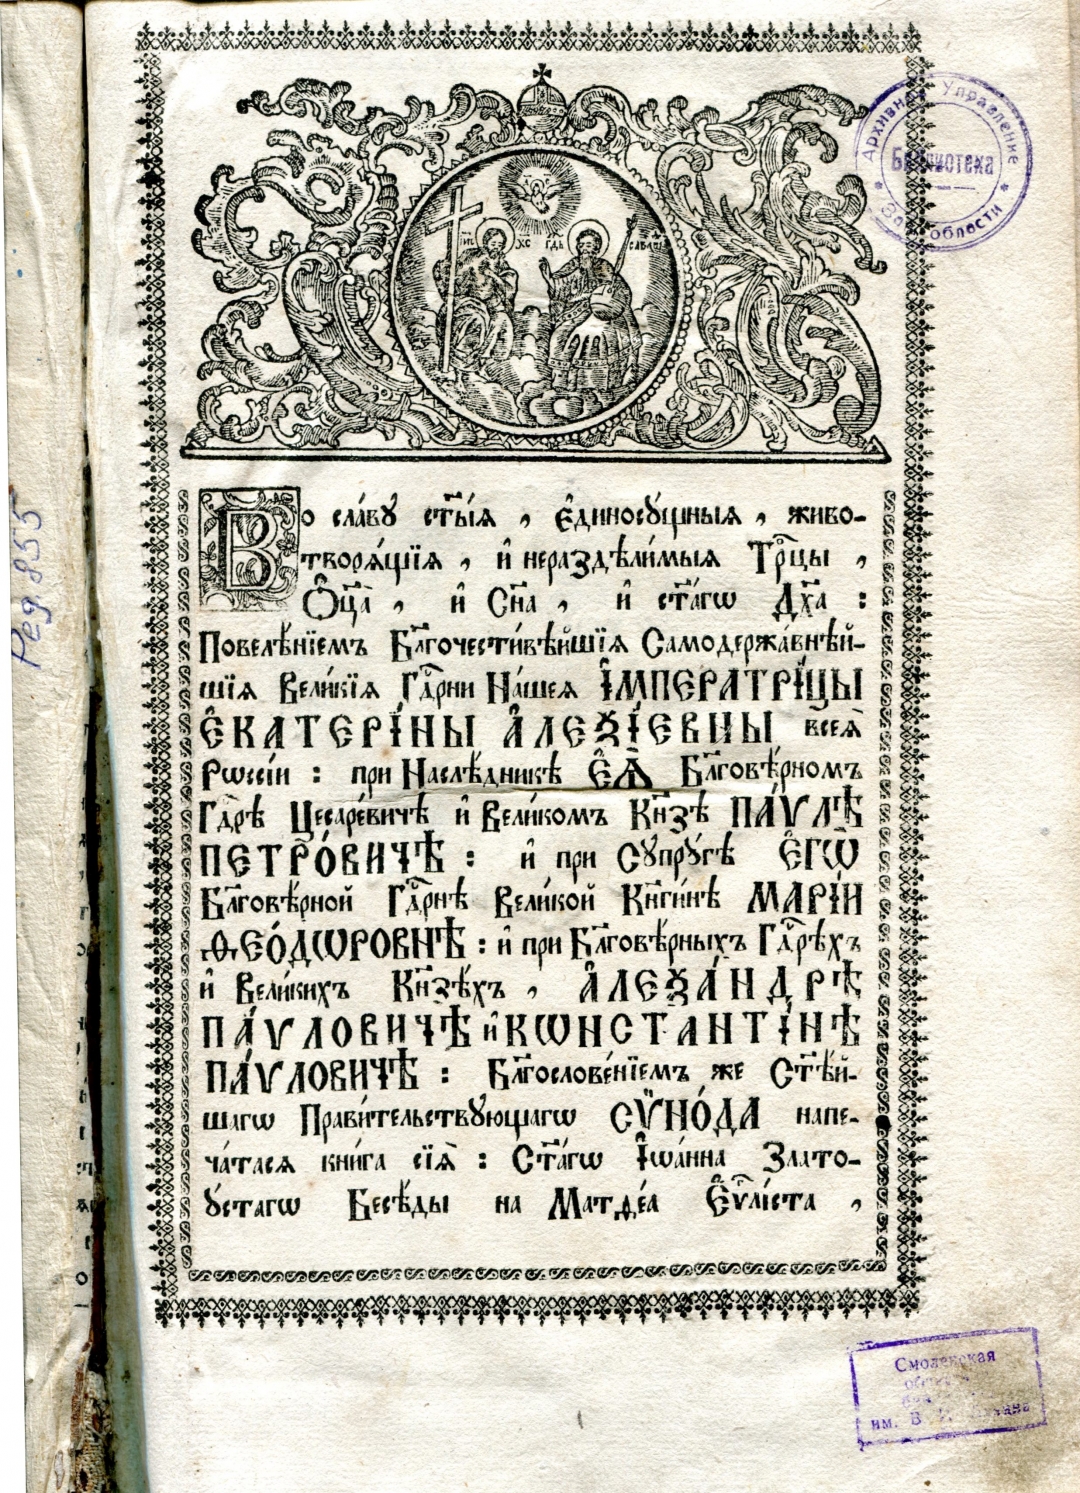 Архивное Управление
Библиотека
Зап. области
ІИС ХС ГДЬ САВАОѲ
Во сла́вꙋ ст҃ы́ѧ , є҆диносꙋ́щныѧ , живо-
творѧ́щїѧ , и҆ нераздѣли́мыѧ Трⷪ҇цы ,
Ѻ҆ц҃а̀ , и҆ Сн҃а , и҆ ст҃а́гѡ Дх҃а :
Повелѣ́нїемъ Бл҃гочести́вѣйшїѧ Самодержа́внѣй-
шїѧ Вели́кїѧ Гдⷭ҇рни На́шеѧ І҆МПЕРАТРІ́ЦЫ
Е҆КАТЕРІ́НЫ А҆ЛЕѮІ́ЕВНЫ всеѧ̀
Рѡссі́и : при Наслѣ́дникѣ Е҆Ѧ̀ Бл҃говѣ́рномъ
Гдⷭ҇рѣ Цесаре́вичѣ и҆ Вели́комъ Кн҃зѣ ПА́ѴЛѢ
ПЕТРО́ВИЧѢ : и҆ при Сꙋпрꙋ́гѣ Е҆ГѠ̀
Бл҃говѣ́рной Гдⷭ҇рнѣ Вели́кой Кнⷭ҇ги́нѣ МАРІ́И
ѲЕО́ДѠРОВНѢ : и҆ при Бл҃говѣ́рныхъ Гдⷭ҇рѣхъ
и҆ Вели́кихъ Кн҃зѣ́хъ , А҆ЛЕѮА́НДРѢ
ПА́ѴЛОВИЧѢ и҆ КѠНСТАНТІ́НѢ
ПА́ѴЛОВИЧѢ : Бл҃гослове́нїемъ же Ст҃ѣ́й-
шагѡ Прави́тельствꙋющагѡ СѴ̈НО́ДА напе-
ча́тасѧ кни́га сїѧ̀ : Ст҃а́гѡ І҆ѡа́нна Злато-
ꙋ́стагѡ Бесѣ́ды на Матѳе́а Е҆ѵⷢ҇лі́ста ,
Рег 855
Смоленская
им. В. И.